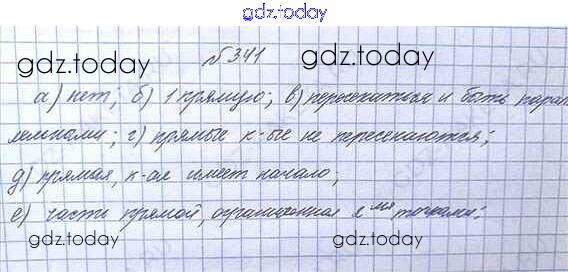 gdz.today
№341
gdz.today
gdz.today
а) нет; б) 1 прямую; в) пересекаться и быть парал
лельными; г) прямые к-ые не пересекаются;
д) прямая, к-ая имеет начало;
е) часть прямой, ограниченная 2мя точками.
gdz.today
gdz.today